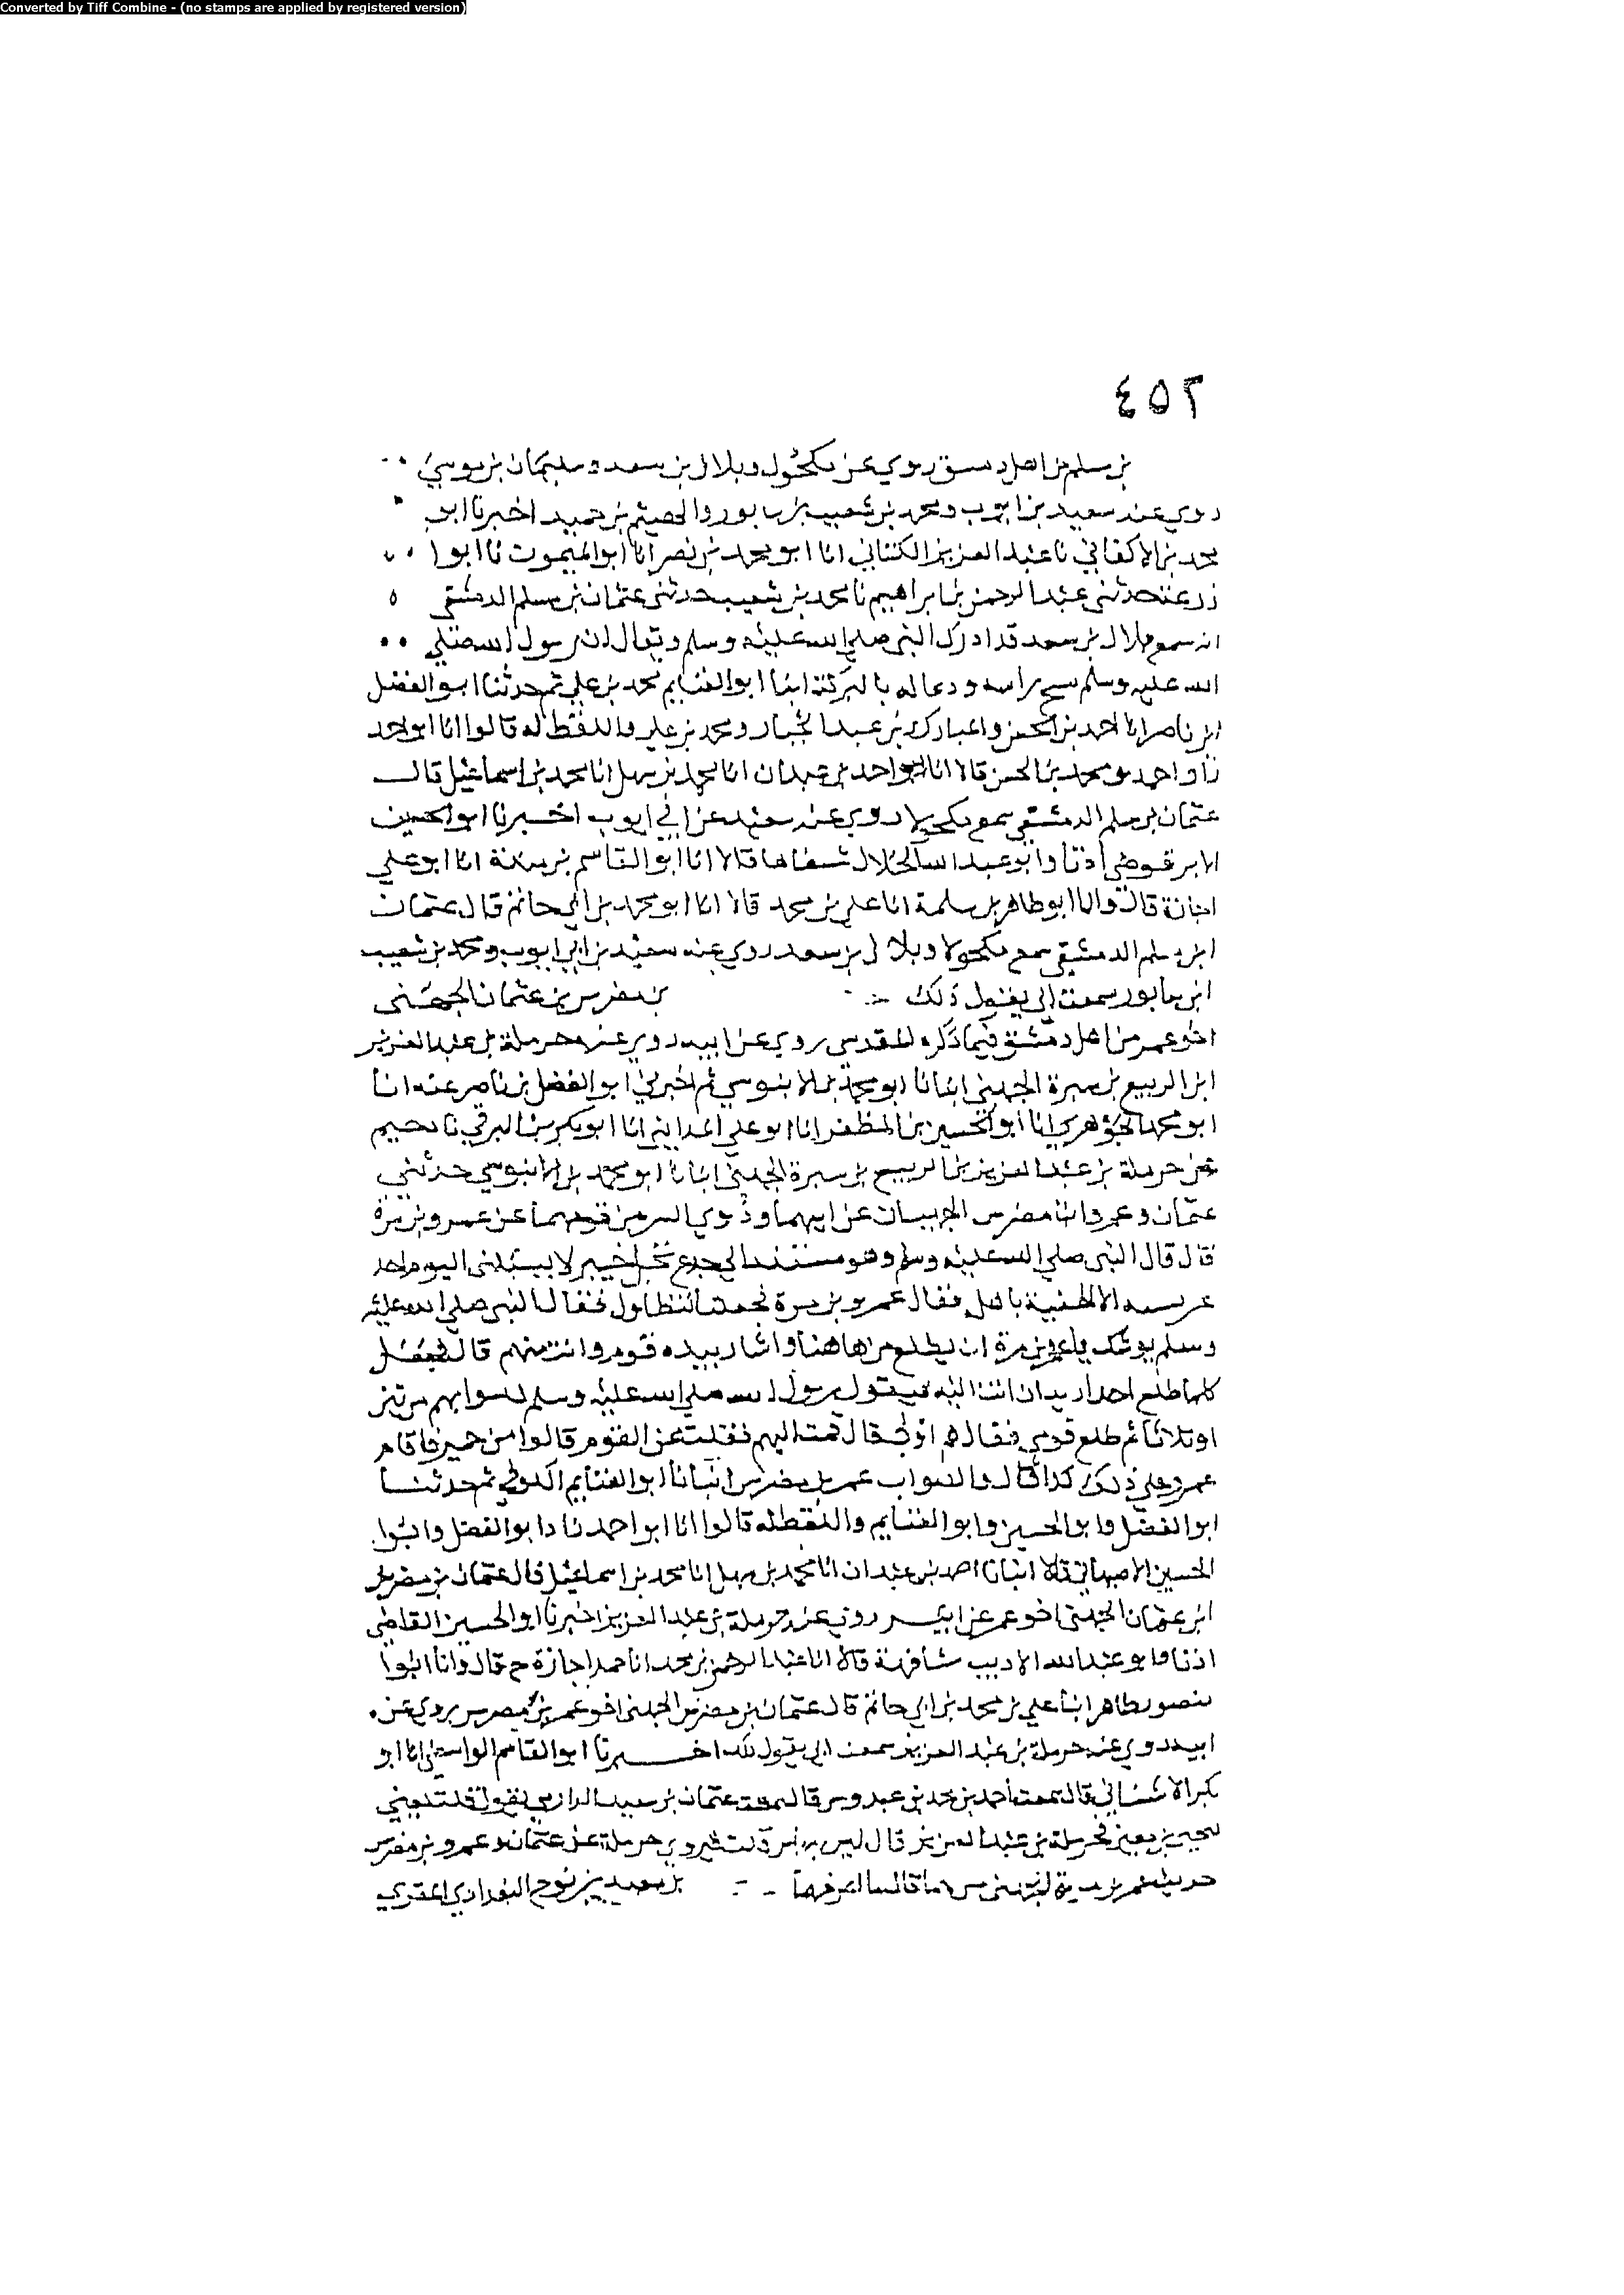 Converted by Tiff Combine - (no stamps are applied by registered version)
٤٥٢
بن مسلم من اهل دمسق روي عن مكحول وبلال بن سعد وسليمان بن موسي
روي عنه سعيد بن ايوب ومحمد بن شعيب بن سابور والهيثم بن حميد اخبرنا ابو
محمد بن الاكفاني نا عبد العزيز الكتاني انا ابو محمد بن نصر انا ابو الميموت نا ابوا
زرعة حدثني عبد الرحمن بن ابراهيم نا محمد بن شعيب حدثني عثمان بن مسلم الدمشقي
انه سمع بلال بن سعد قد ادرك النبي صلي الله عليه وسلم ويقال ان رسول الله صلي
الله عليه وسلم مسح راسه ودعا له بالبركة انبا ابو الغنايم محمد بن علي ثم حدثنا ابو الفضل
ابن ناصر انا احمد بن الحسن والمبارك بن عبد الجبار ومحمد بن علي واللفظ له قالوا انا ابو احمد
زاد احمد ومحمد بن الحسن قالا انا احمد بن عبدان انا محمد بن سهل انا محمد بن اسماعيل قال
عثمان بن مسلم الدمشقي سمع مكحولا روي عنه سعيد بن ابي ايوب اخبرنا ابو الحسين
اذنا وابو عبد الله الخلال شفاها قالا انا ابو القاسم بن مندة انا ابو علي
اجازة قال وانا ابو طاهر بن سلمة انا علي بن محمد قالا انا ابو محمد بن ابي حاتم قال عثمان
ابن مسلم الدمشقي سمع مكحولا وبلال بن سعد روي عنه سعيد بن ابي ايوب ومحمد بن شعيب
ابن سابور سمعت ابي يقول ذلك بن مضرس بن عثمان الجهني
اخو عمر من اهل دمشق فيما ذكره المقدسي روي عن ابيه روي عنه حرملة بن عبد العزيز
ابن الربيع بن سبرة الجهني انبانا ابو محمد بن الابنوسي ثم اخبرني ابو الفضل بن ناصر عنه انا
ابو محمد الجوهري انا ابو الحسين بن المظفر انا ابو علي المدايني انا ابو بكر بن البرقي نا دحيم
عن حرملة بن عبد العزيز بن الربيع بن سبرة الجهني انبانا ابو محمد بن الابنوسي حدثني
عثمان وعمرو ابنا مضرس الجهنيان عن ابيهما وذوي السن من قومهما عن عمرو بن مرة
قال قال النبي صلي الله عليه وسلم وهو مستند الي جدع نخل خيبر لا يسئلني اليوم احد
فقال عمرو بن مرة فجعلت اتطاول فقال النبي صلي الله عليه
وسلم يوشك يا عمرو بن مرة ان يطلع من هاهنا واشار بيده قوم وانت منهم قال فجعل
كلما طلع احد اريد ان اثب اليه فيقول رسول الله صلي الله عليه وسلم ليسوا بهم مرتين
او ثلاثا ثم طلع قومي فقال هم اولي قال قمت اليهم فقلت عن القوم قالوا من حمير فاقام
عمرو علي ذلك كذا قال والصواب عمر بن مضرس انبانا ابو الغنايم الكوفي ثم حدثنا
ابو الفضل وابو الحسين وابو الغنايم واللفظ له قالوا انا ابو احمد زاد ابو الفضل وابوا
الحسين الاصبهاني قالا انبانا احمد بن عبدان انا محمد بن سهل انا محمد بن اسماعيل قال عثمان بن مضرس
ابن عثمان الجهني اخو عمر عن ابيه روي عنه حرملة بن عبد العزيز اخبرنا ابو الحسين القاضي
اذنا وابو عبد الله الاديب شافهة قالا انا عبد الرحمن بن محمد انا حمد اجازة ح قال وانا ابوا
منصور طاهر انبا علي بن محمد بن ابي حاتم قال عثمان بن مضرس الجهني اخو عمر بن مضرس يروي عن
ابيه روي عنه حرملة بن عبد العزيز سمعت ابي يقول ذلك اخبرنا ابو القاسم الواسطي انا ابو
بكر الاشناني قال سمعت احمد بن محمد بن عبدوس قال سمعت عثمان بن سعيد الدارمي يقول قلت ليحيي
بن معين فحرملة بن عبد العزيز قال ليس به باس قلت فيروي حرملة عن عثمان وعمرو بن مضرس
حديث عمرو بن مرة الجهني من هما قال ما اعرفهما بن معبد بن نوح البغدادي المقري